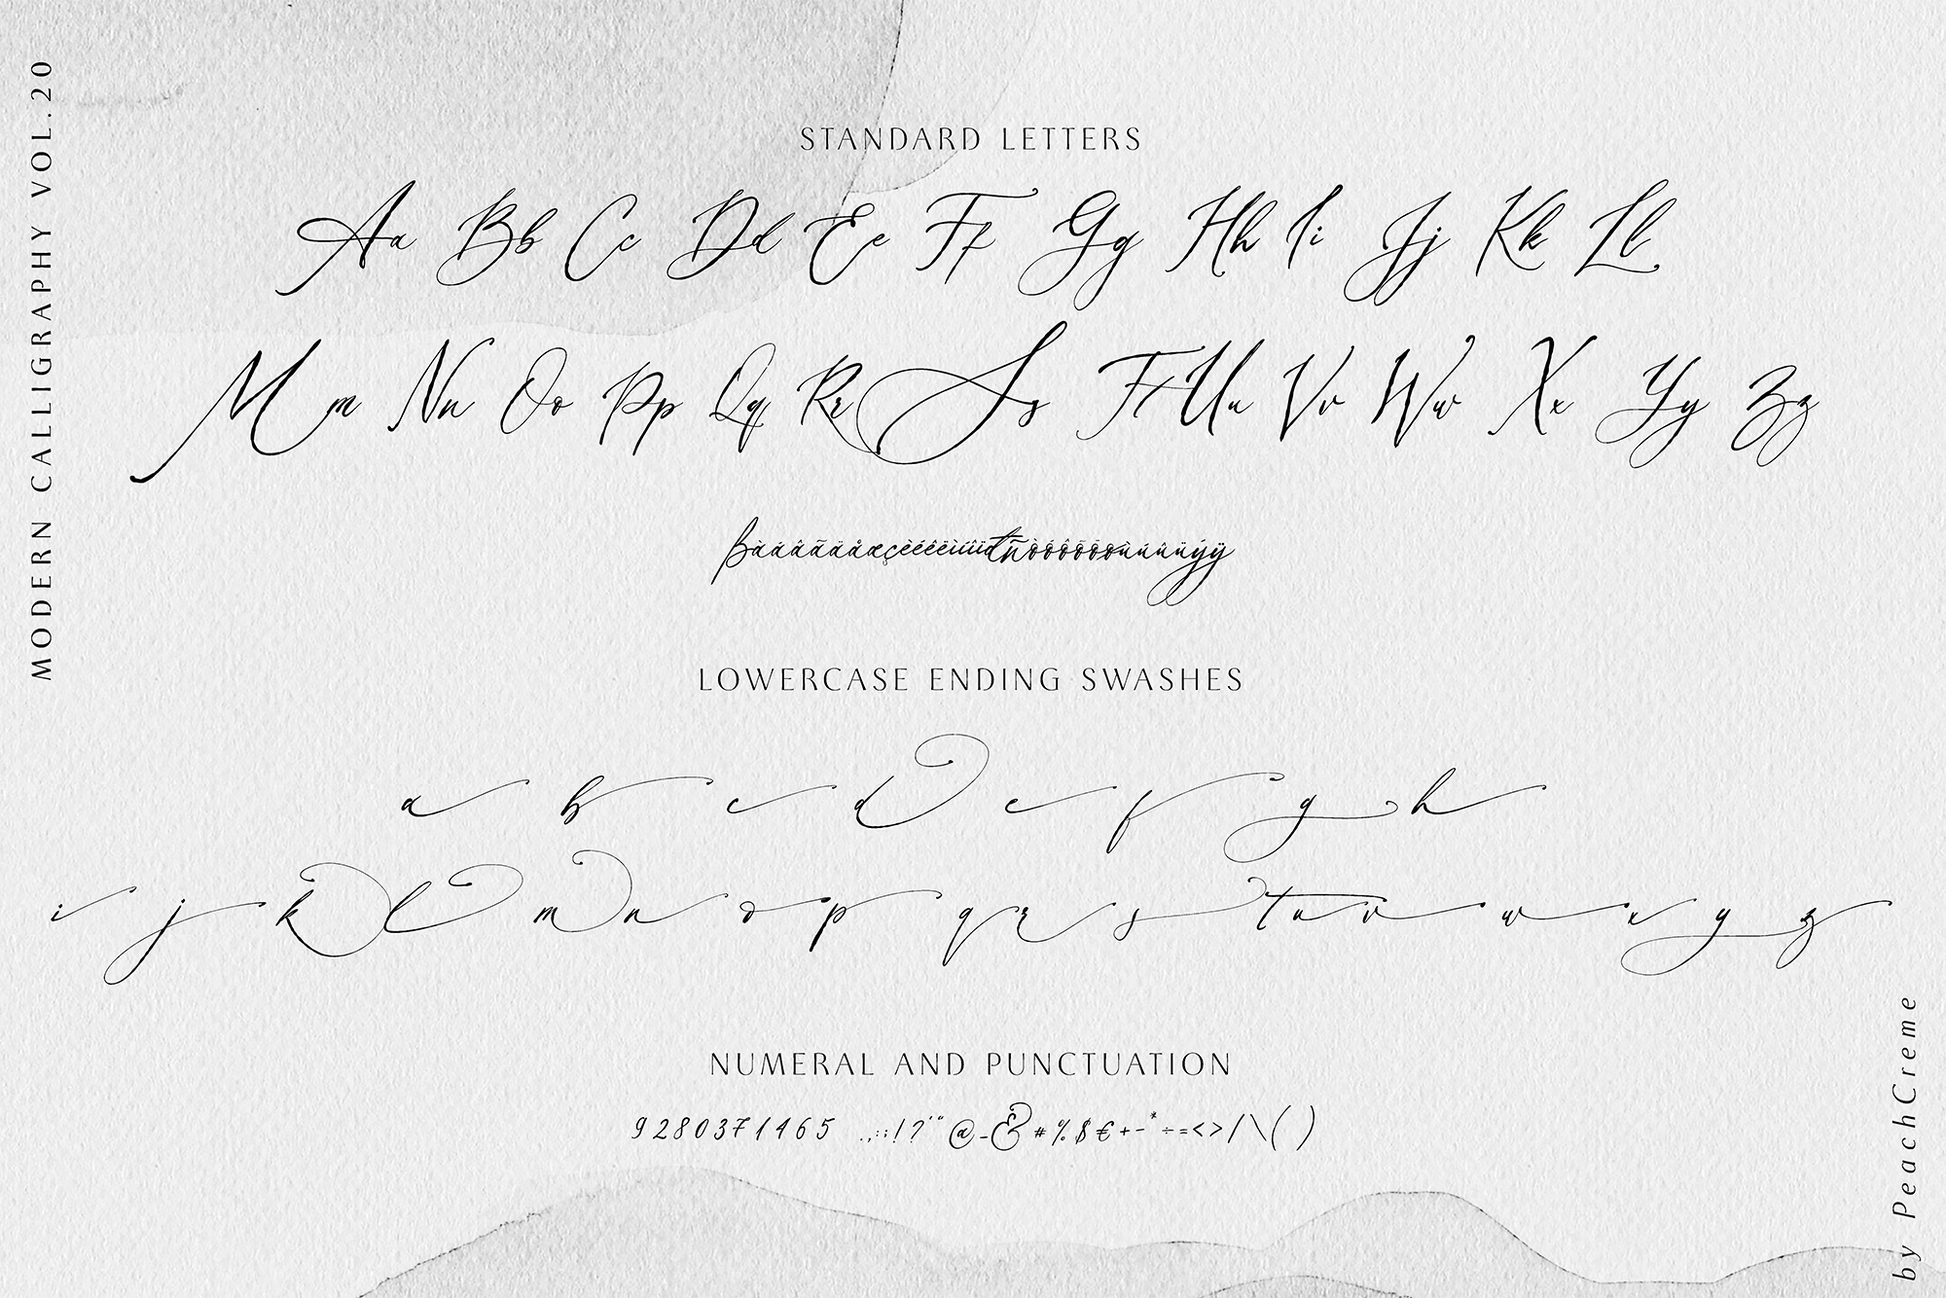 MODERN CALLIGRAPHY VOL.20
STANDARD LETTERS
Aa Bb Cc Dd Ee Ff Gg Hh Ii Jj Kk Ll
Mm Nn Oo Pp Qq Rr Ss Tt Uu Vv Ww Xx Yy Zz
LOWERCASE ENDING SWASHES
a b c d e f g h
i j k l m n o p q r s t u v w x y z
NUMERAL AND PUNCTUATION
9280371465 .,:;!?'"@-&#%$€+-*÷=<>/\()
by PeachCreme